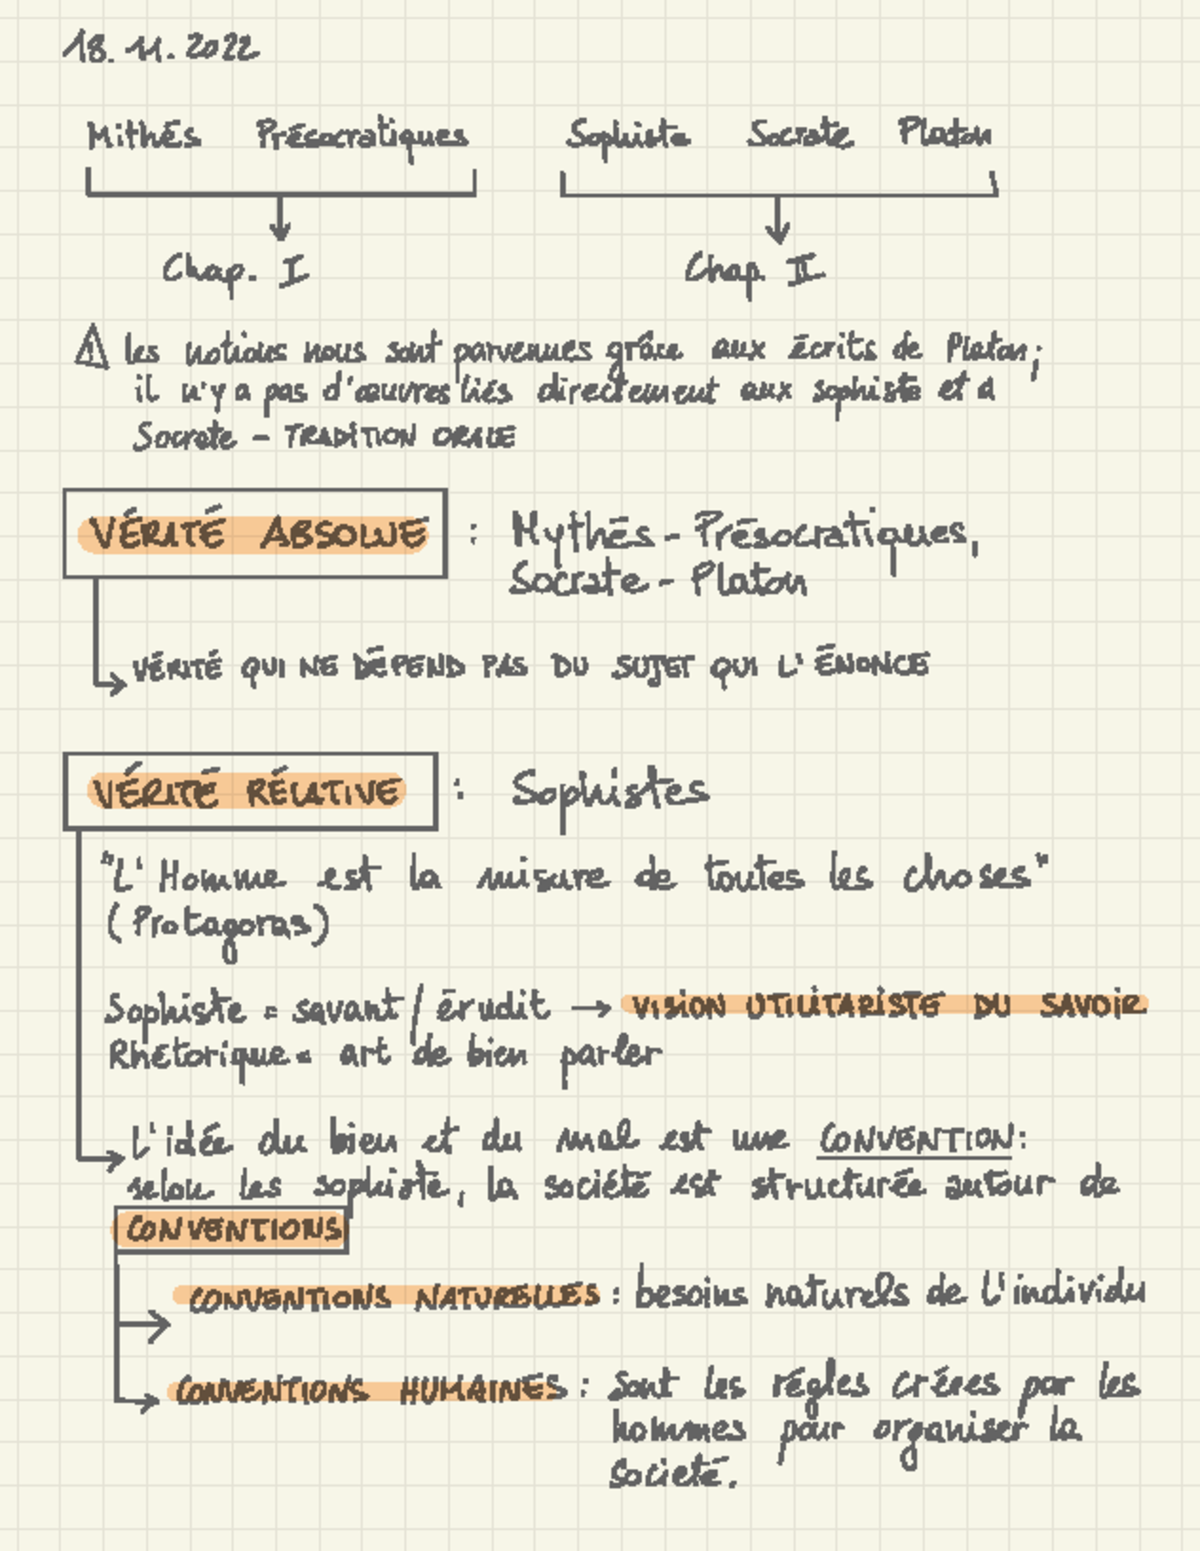 18.11.2022
Mithés Présocratiques Sophiste Socrate Platon
Chap. I Chap. II
⚠ les notions nous sont parvenues grâce aux écrits de Platon;
il n'y a pas d'œuvres liés directement aux sophiste et a
Socrate - TRADITION ORALE
VÉRITÉ ABSOLUE : Mythés - Présocratiques,
Socrate - Platon
VÉRITÉ QUI NE DÉPEND PAS DU SUJET QUI L'ÉNONCE
VÉRITÉ RÉLATIVE : Sophistes
"L'Homme est la misure de toutes les choses"
(Protagoras)
Sophiste = savant / érudit → VISION UTILITARISTE DU SAVOIR
Rhétorique = art de bien parler
L'idée du bien et du mal est une CONVENTION:
selon les sophiste, la société est structurée autour de
CONVENTIONS
CONVENTIONS NATURELLES : besoins naturels de l'individu
CONVENTIONS HUMAINES : sont les régles créres par les
hommes pour organiser la
societé.